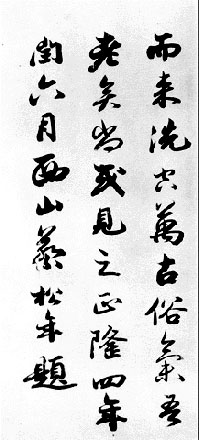 而来洗空萬古俗氣吾
老矣尚或見之正隆四年
閏六月西山蔡松年題